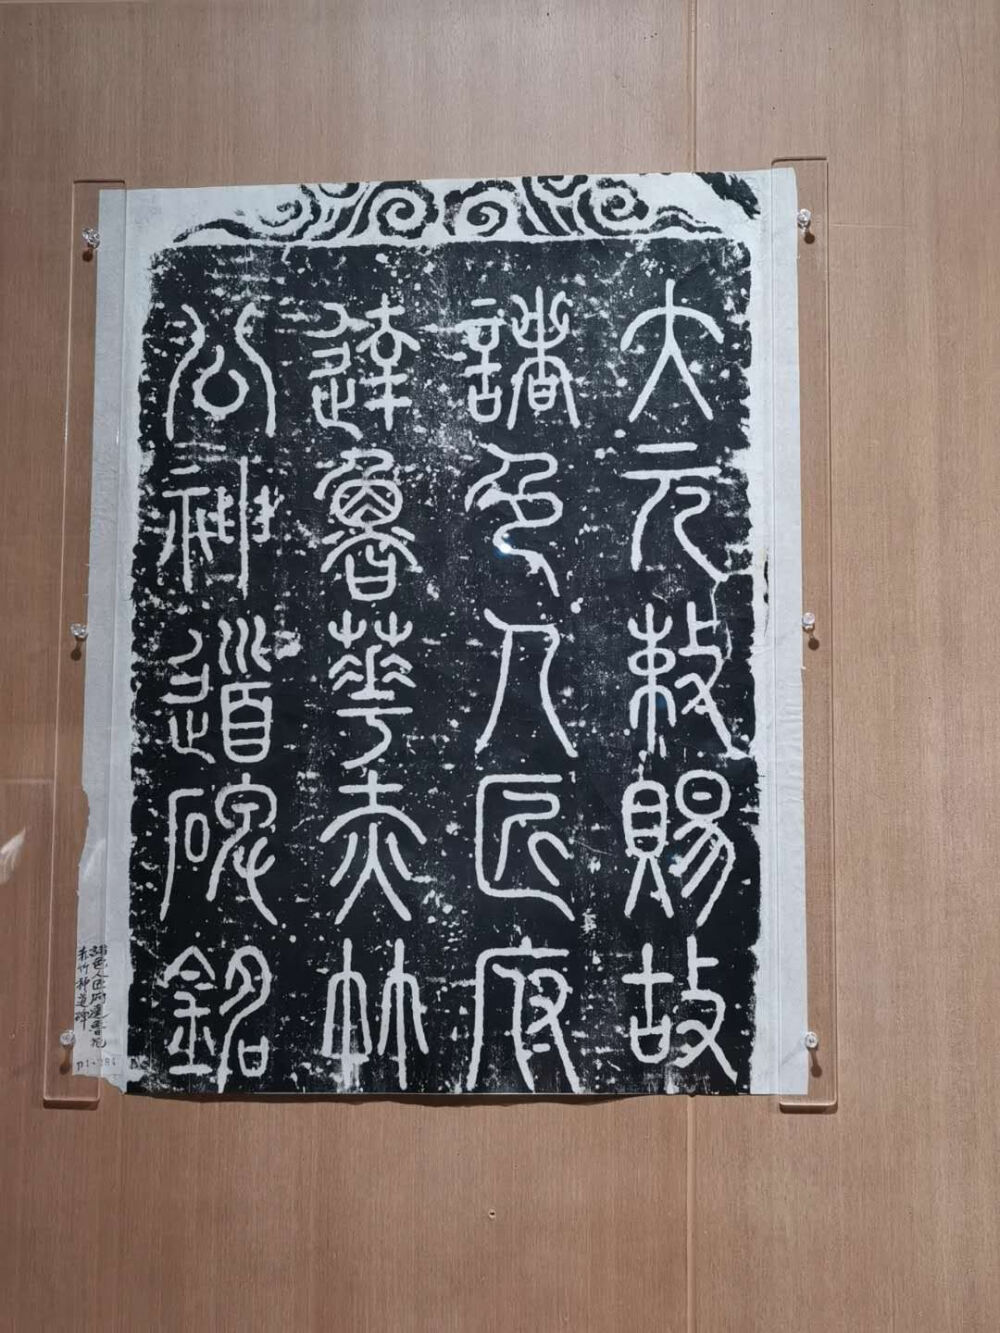 大元敕賜故
諸色人匠府
達魯華赤竹
公神道碑銘
諸色人匠府達魯花
赤竹神道碑